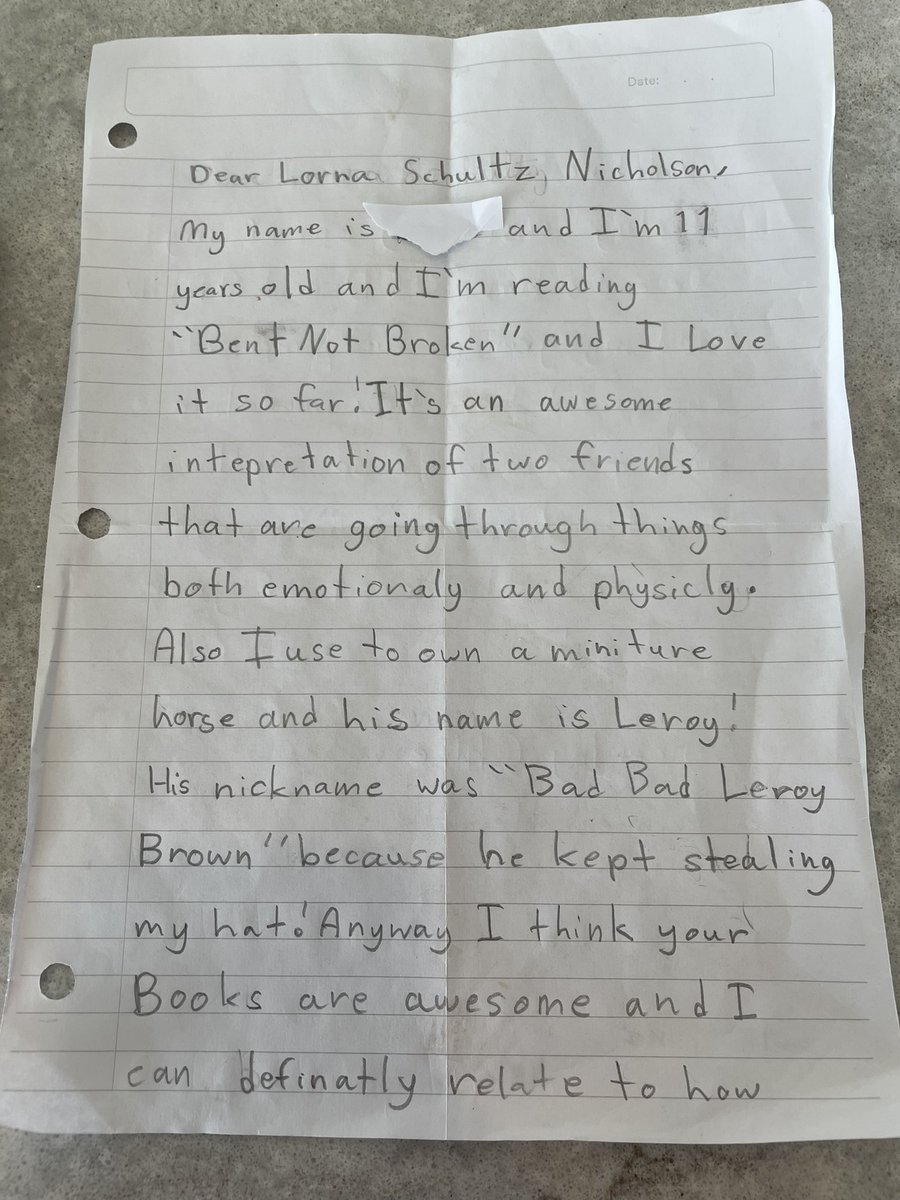 Date:
Dear Lorna Schultz, Nicholson,
My name is and I'm 11
years old and I'm reading
"Bent Not Broken" and I Love
it so far! It's an awesome
intepretation of two friends
that are going through things
both emotionaly and physicly.
Also I use to own a miniture
horse and his name is Leroy!
His nickname was "Bad Bad Leroy
Brown" because he kept stealing
my hat! Anyway I think your
Books are awesome and I
can definatly relate to how